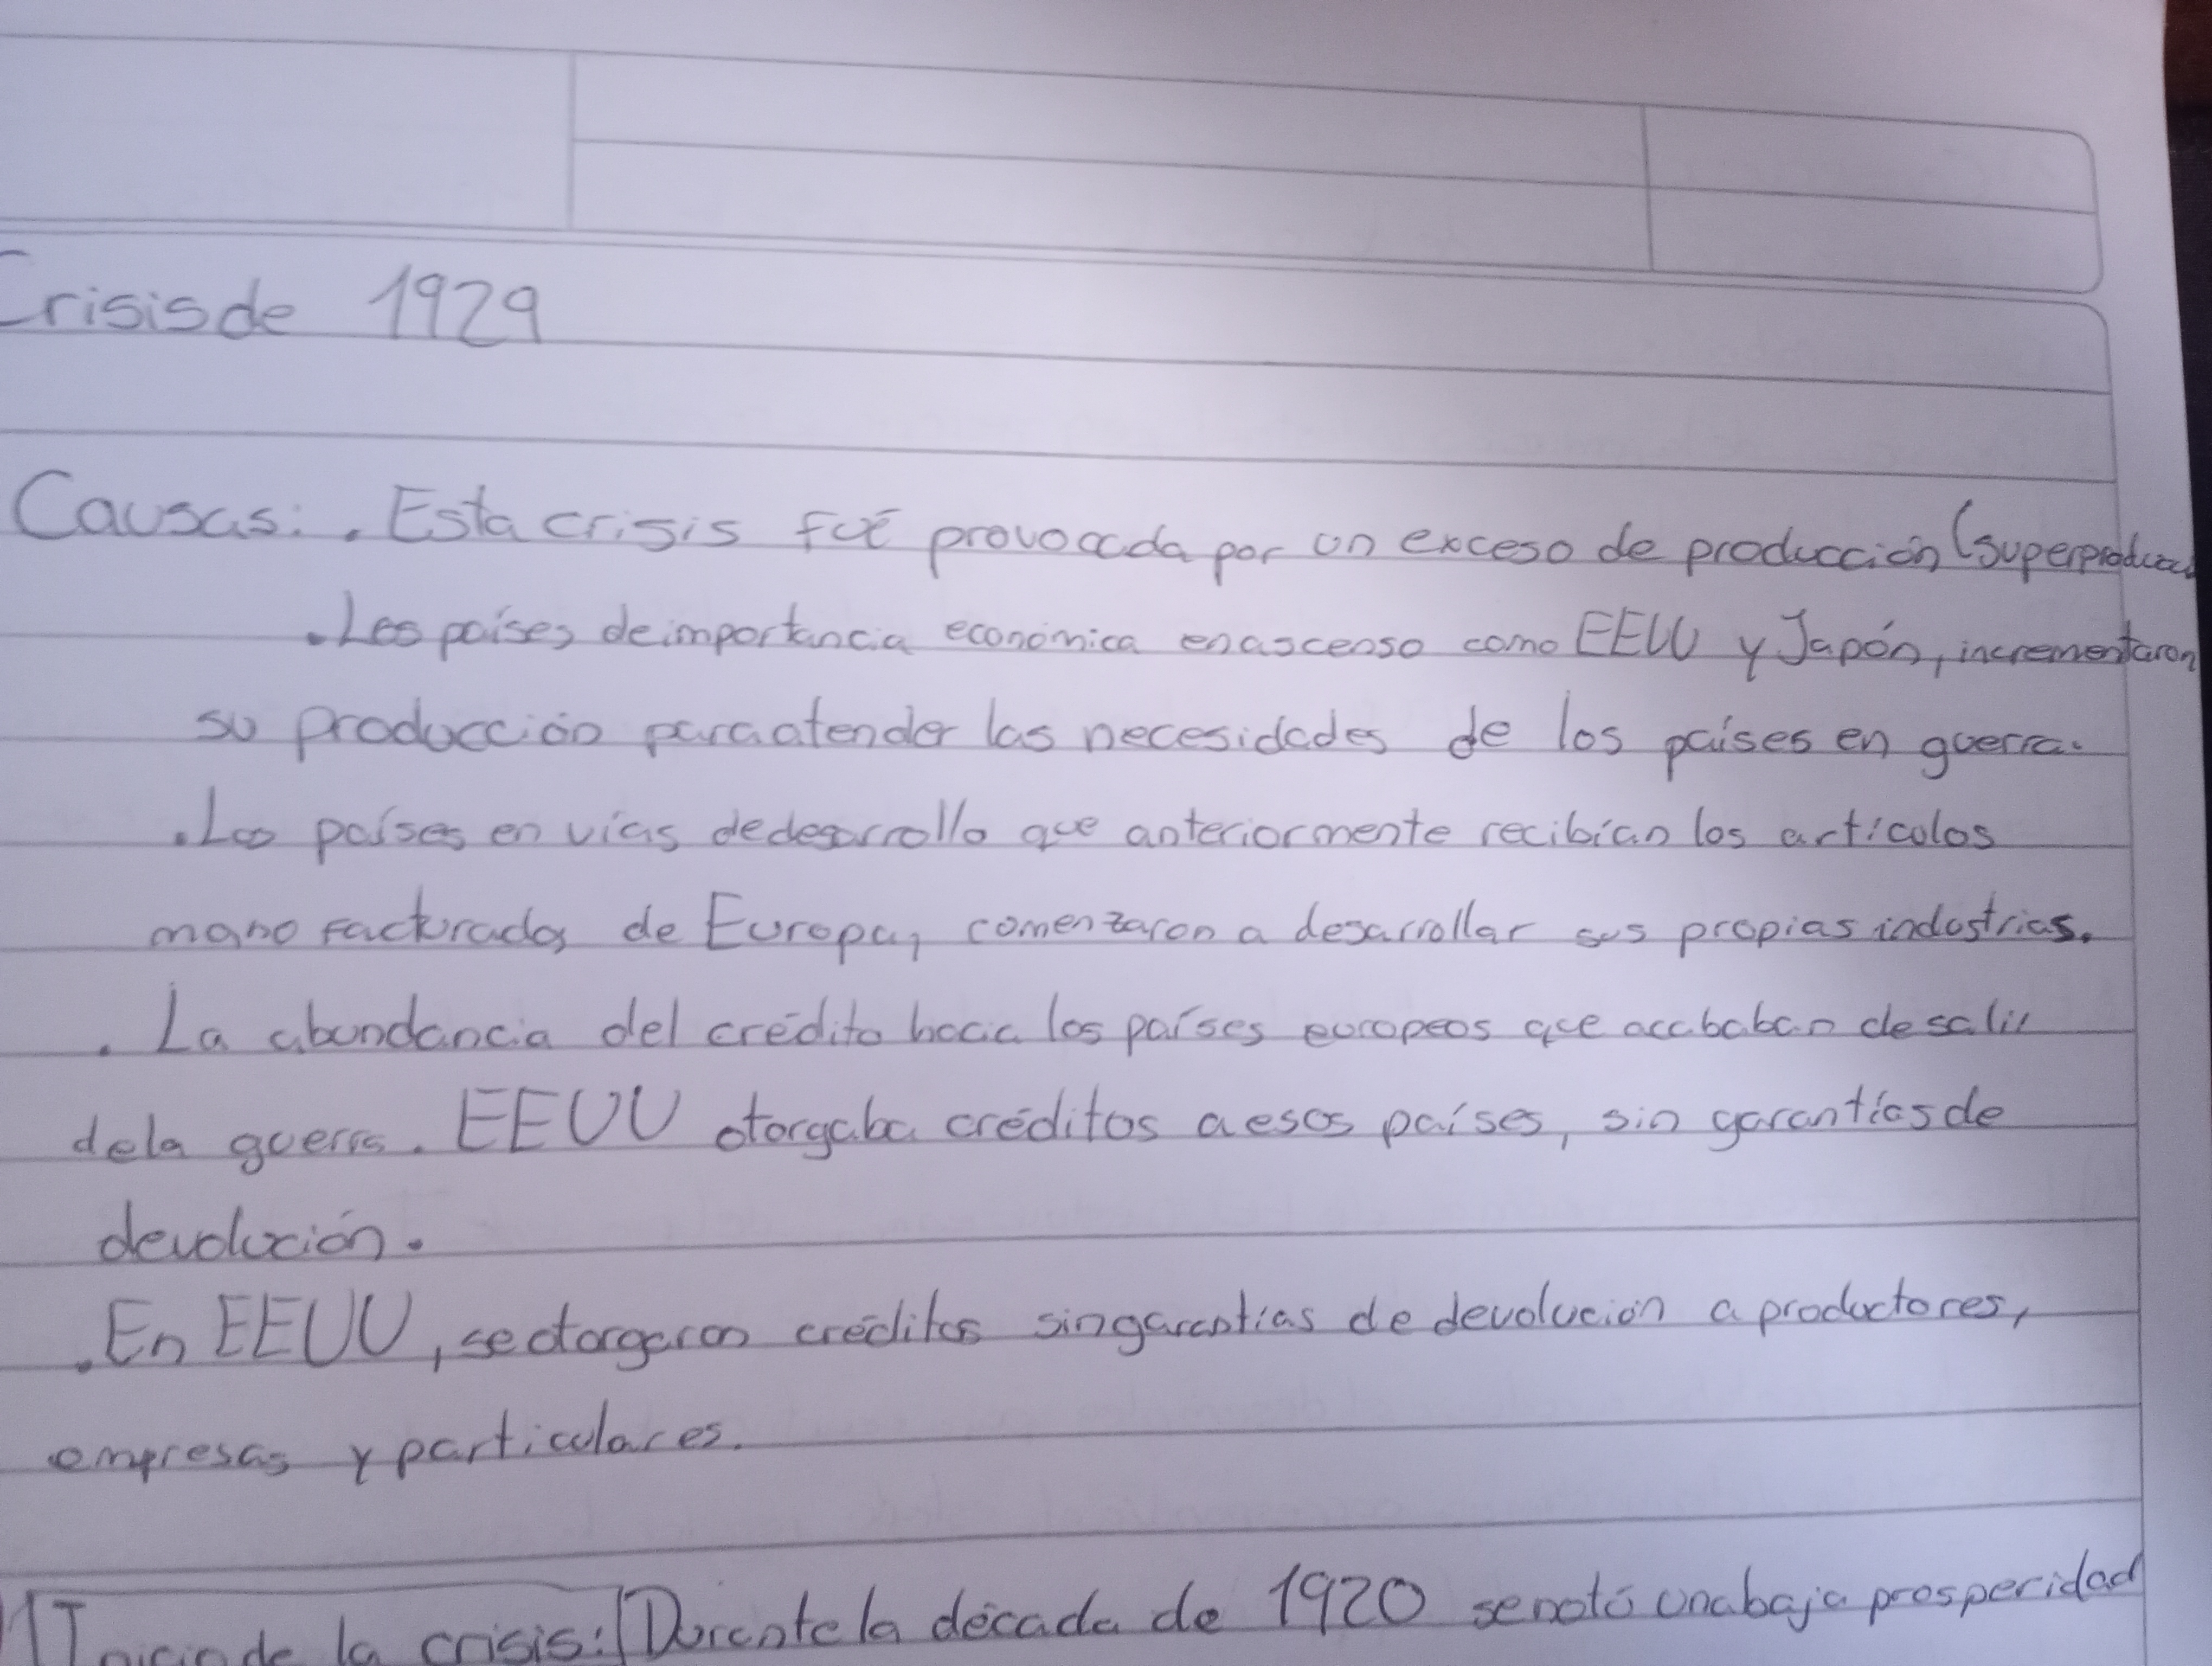 Crisis de 1929
Causas: . Esta crisis fué provocada por un exceso de producción (superproducc
. Los países de importancia económica en ascenso como EEUU y Japón, incrementaron
su producción para atender las necesidades de los países en guerra.
. Los países en vías de desarrollo que anteriormente recibían los artículos
manofacturados de Europa, comenzaron a desarrollar sus propias industrias.
. La abundancia del crédito hacia los países europeos que acababan de salir
de la guerra. EEUU otorgaba créditos a esos países, sin garantías de
devolución.
. En EEUU, se otorgaron créditos sin garantías de devolución a productores,
empresas y particulares.
Inicio de la crisis: Durante la década de 1920 se notó una baja prosperidad